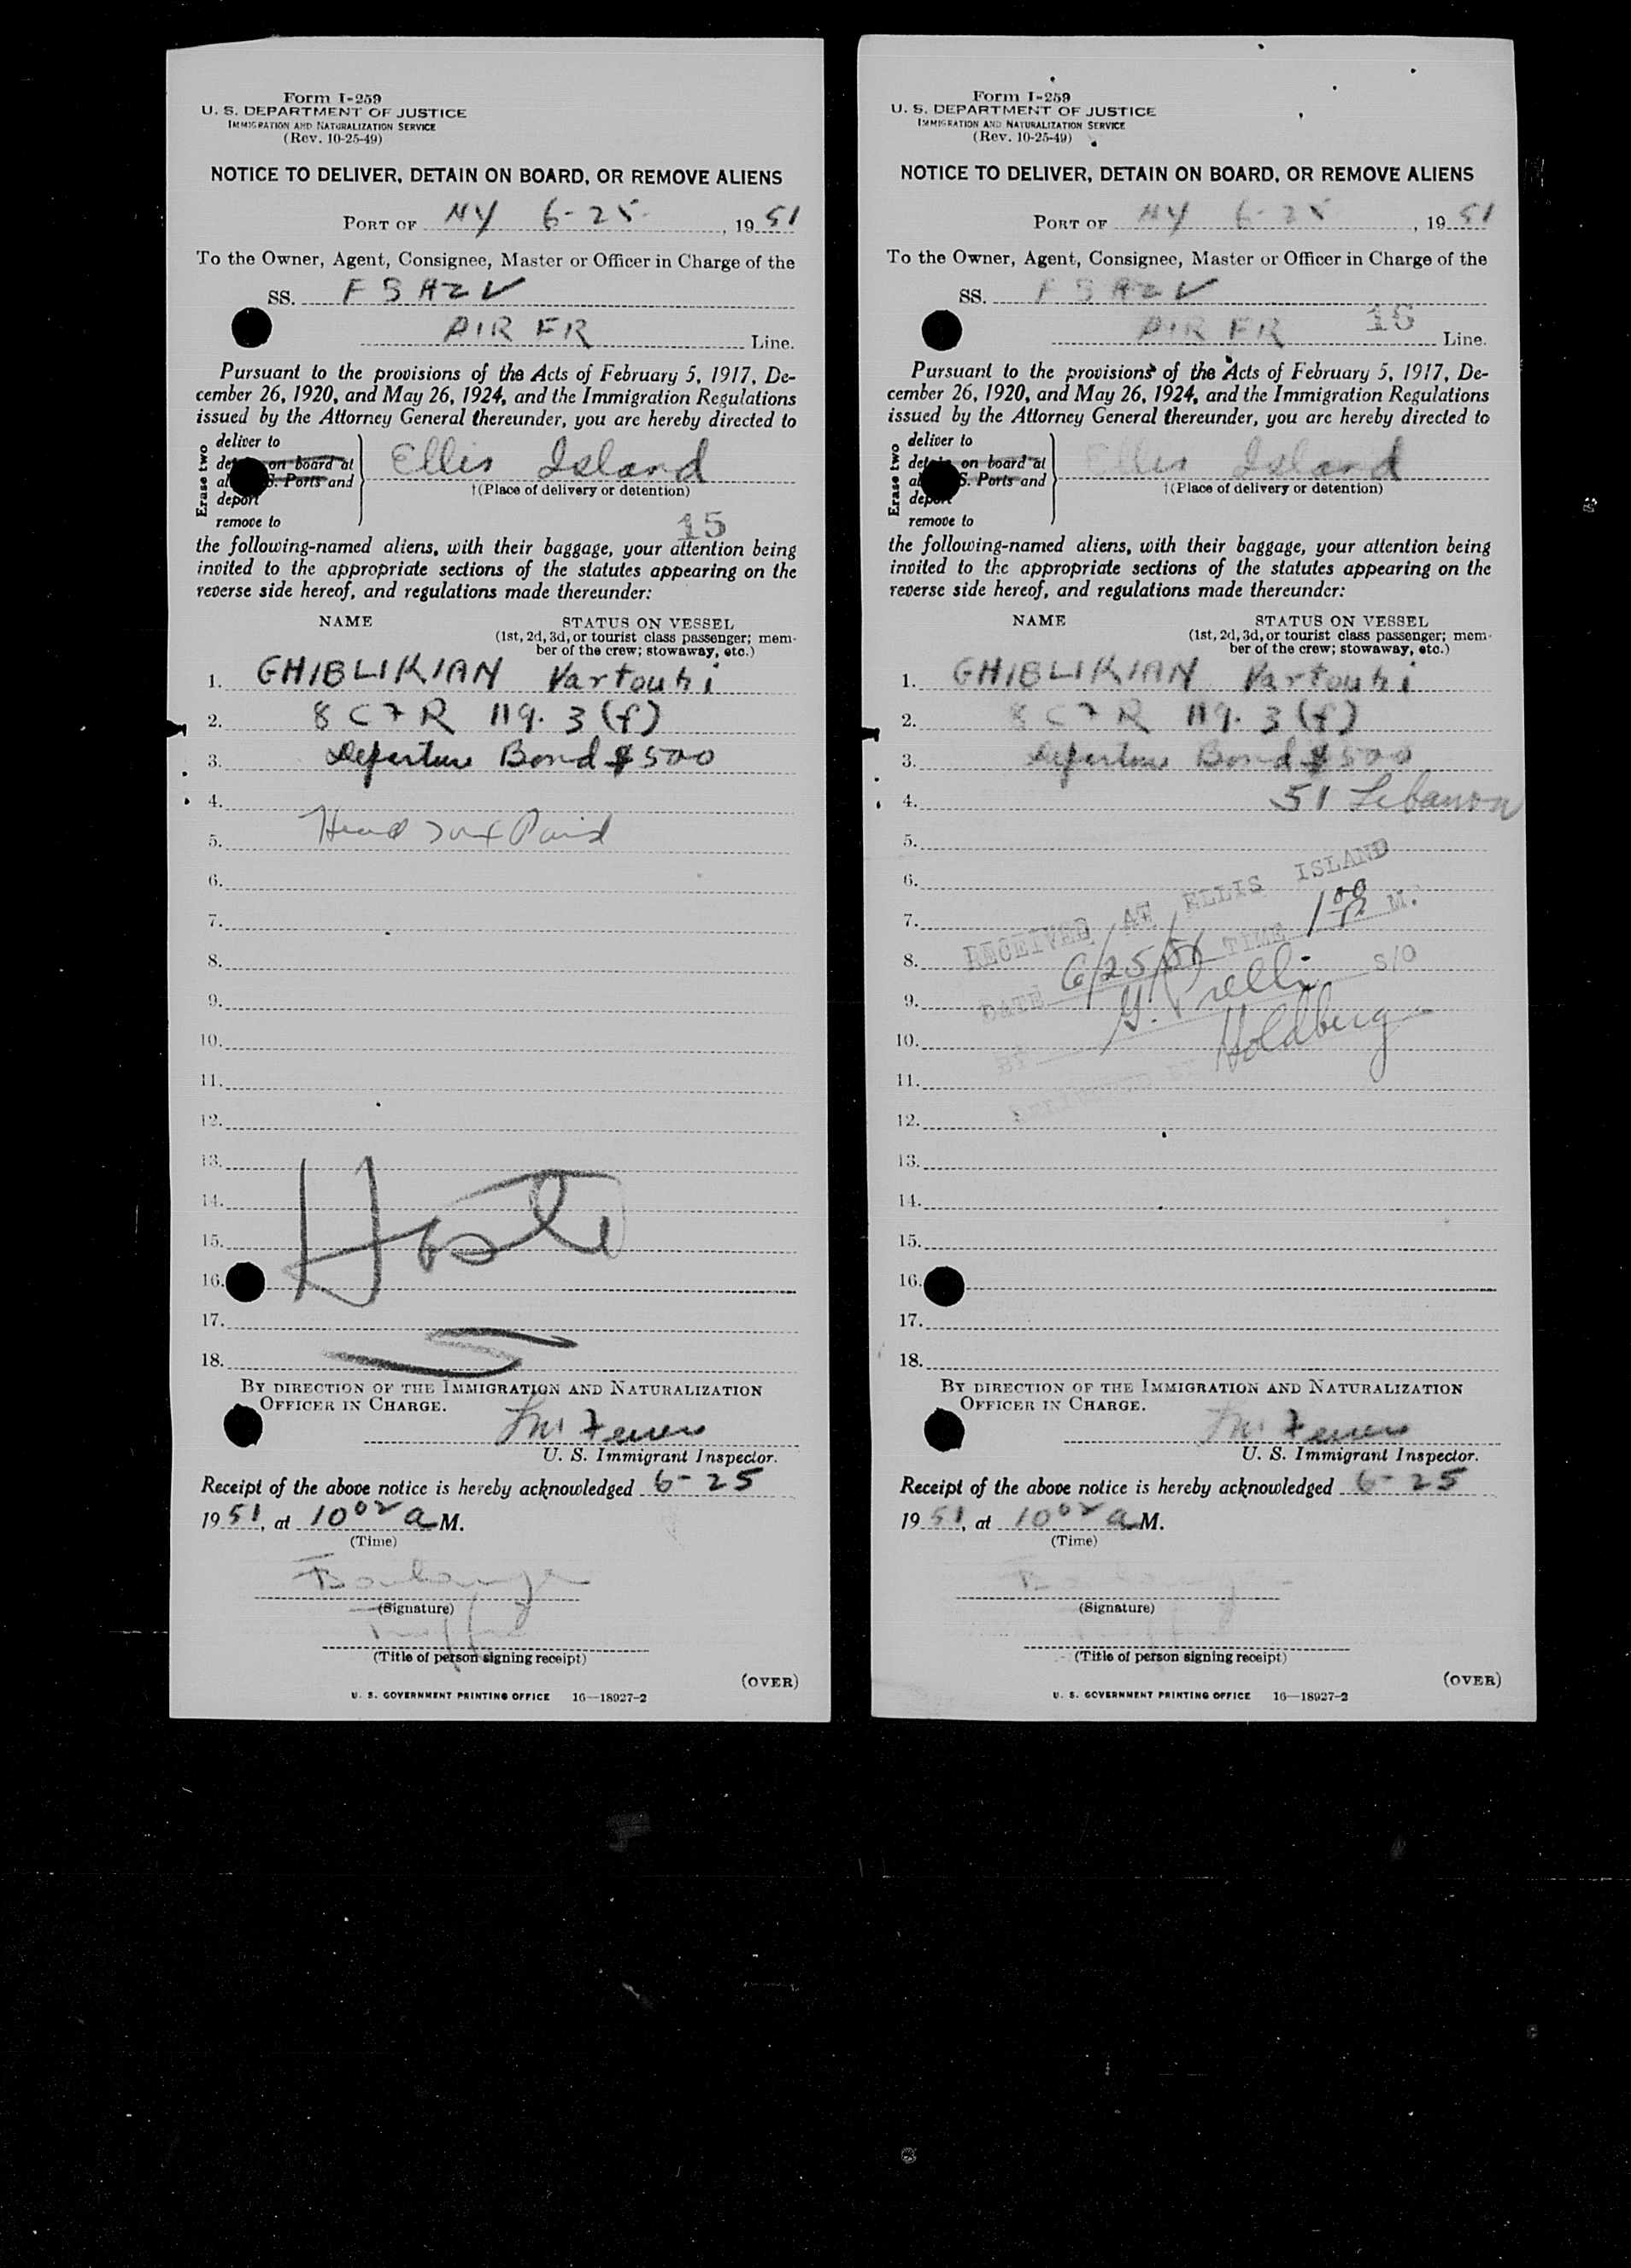 Form I-259
U. S. DEPARTMENT OF JUSTICE
IMMIGRATION AND NATURALIZATION SERVICE
(Rev. 10-25-49)
NOTICE TO DELIVER, DETAIN ON BOARD, OR REMOVE ALIENS
PORT OF NY 6-25- , 19 51
To the Owner, Agent, Consignee, Master or Officer in Charge of the
SS. F B AZV
AIR FR Line.
Pursuant to the provisions of the Acts of February 5, 1917, De-
cember 26, 1920, and May 26, 1924, and the Immigration Regulations
issued by the Attorney General thereunder, you are hereby directed to
Erase two
deliver to
on board at
S. Ports and
deport
remove to
Ellis Island
†(Place of delivery or detention)
15
the following-named aliens, with their baggage, your attention being
invited to the appropriate sections of the statutes appearing on the
reverse side hereof, and regulations made thereunder:
NAME STATUS ON VESSEL
(1st, 2d, 3d, or tourist class passenger; mem-
ber of the crew; stowaway, etc.)
1. GHIBLIKIAN Vartouhi
2. 8 CFR 119. 3 (f)
3. Departure Bond $500
4.
5. Head Tax Paid
6.
7.
8.
9.
10.
11.
12.
13.
14.
15.
16.
17.
18.
BY DIRECTION OF THE IMMIGRATION AND NATURALIZATION
OFFICER IN CHARGE.
U. S. Immigrant Inspector.
Receipt of the above notice is hereby acknowledged 6-25
19 51, at 10 02 a M.
(Time)
(Signature)
(Title of person signing receipt)
(OVER)
U. S. GOVERNMENT PRINTING OFFICE 16—18927-2
Form I-259
U. S. DEPARTMENT OF JUSTICE
IMMIGRATION AND NATURALIZATION SERVICE
(Rev. 10-25-49)
NOTICE TO DELIVER, DETAIN ON BOARD, OR REMOVE ALIENS
PORT OF NY 6-25 , 19 51
To the Owner, Agent, Consignee, Master or Officer in Charge of the
SS. F B AZV
15
AIR FR Line.
Pursuant to the provisions of the Acts of February 5, 1917, De-
cember 26, 1920, and May 26, 1924, and the Immigration Regulations
issued by the Attorney General thereunder, you are hereby directed to
Erase two
deliver to
detain on board at
S. Ports and
deport
remove to
Ellis Island
†(Place of delivery or detention)
the following-named aliens, with their baggage, your attention being
invited to the appropriate sections of the statutes appearing on the
reverse side hereof, and regulations made thereunder:
NAME STATUS ON VESSEL
(1st, 2d, 3d, or tourist class passenger; mem-
ber of the crew; stowaway, etc.)
1. GHIBLIKIAN Vartouhi
2. 8 CFR 119. 3 (f)
3. Departure Bond $500
4. 51 Lebanon
5.
6.
7.
8.
9.
10.
11.
12.
13.
14.
15.
16.
17.
18.
RECEIVED AT ELLIS ISLAND
DATE 6/25/51 TIME 1 00 P M.
BY S/O
DELIVERED BY Holdberg
BY DIRECTION OF THE IMMIGRATION AND NATURALIZATION
OFFICER IN CHARGE.
U. S. Immigrant Inspector.
Receipt of the above notice is hereby acknowledged 6-25
19 51, at 10 02 a M.
(Time)
(Signature)
(Title of person signing receipt)
(OVER)
U. S. GOVERNMENT PRINTING OFFICE 16—18927-2